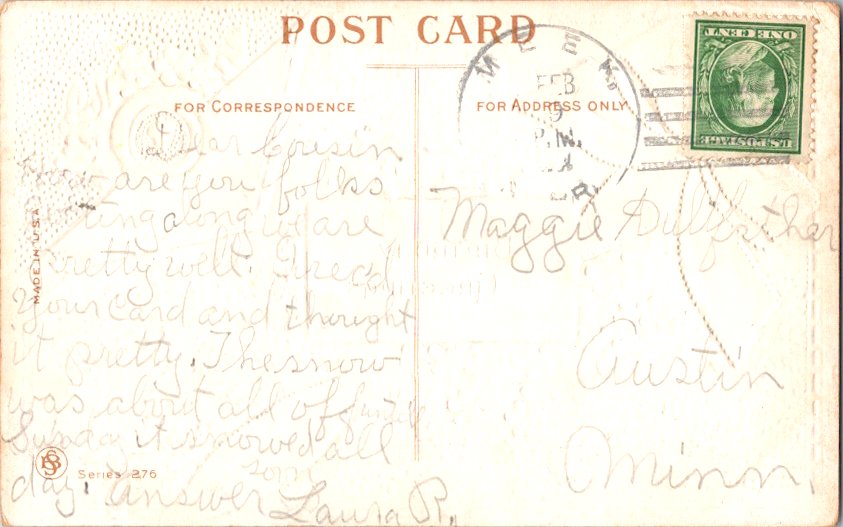 POST CARD
FOR CORRESPONDENCE
FOR ADDRESS ONLY
U.S. POSTAGE
ONE CENT
FEB
9
P.M.
Dear Cousin
How are you folks
getting along we are
pretty well. I rec'd
your card and thought
it pretty. The snow
was about all off until
Sunday it snowed all
day. answer soon
Laura R.
Maggie
Austin
Minn.
MADE IN U.S.A.
BS
Series 276